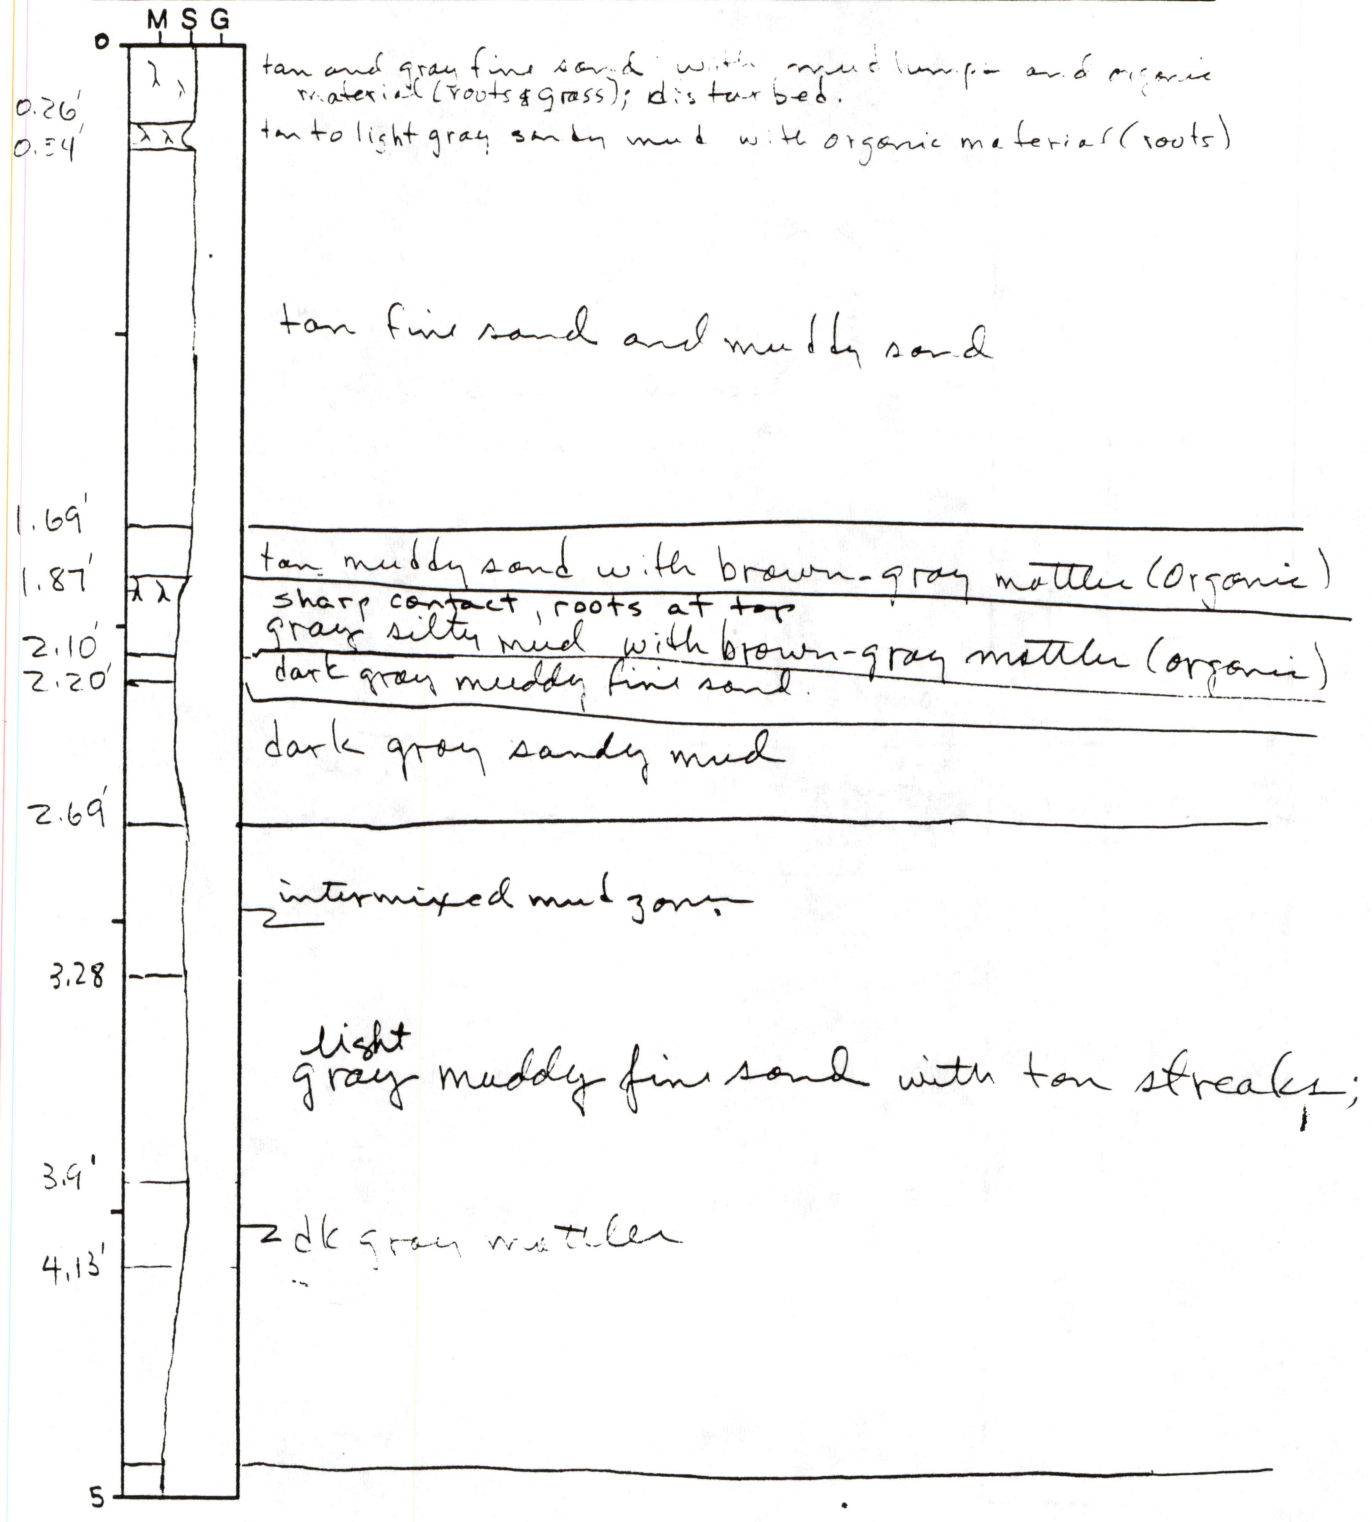 M S G
0
tan and gray fine sand with mud lumps and organic
material (roots & grass); disturbed.
0.26'
0.34'
tan to light gray sandy mud with organic material (roots)
tan fine sand and muddy sand
1.69'
tan muddy sand with brown-gray mottles (organic)
1.87'
sharp contact, roots at top
gray silty mud with brown-gray mottles (organic)
2.10'
dark gray muddy fine sand.
2.20'
dark gray sandy mud
2.69'
intermixed mud zones
3.28
light
gray muddy fine sand with tan streaks;
3.9'
dk gray mottles
4.13'
5